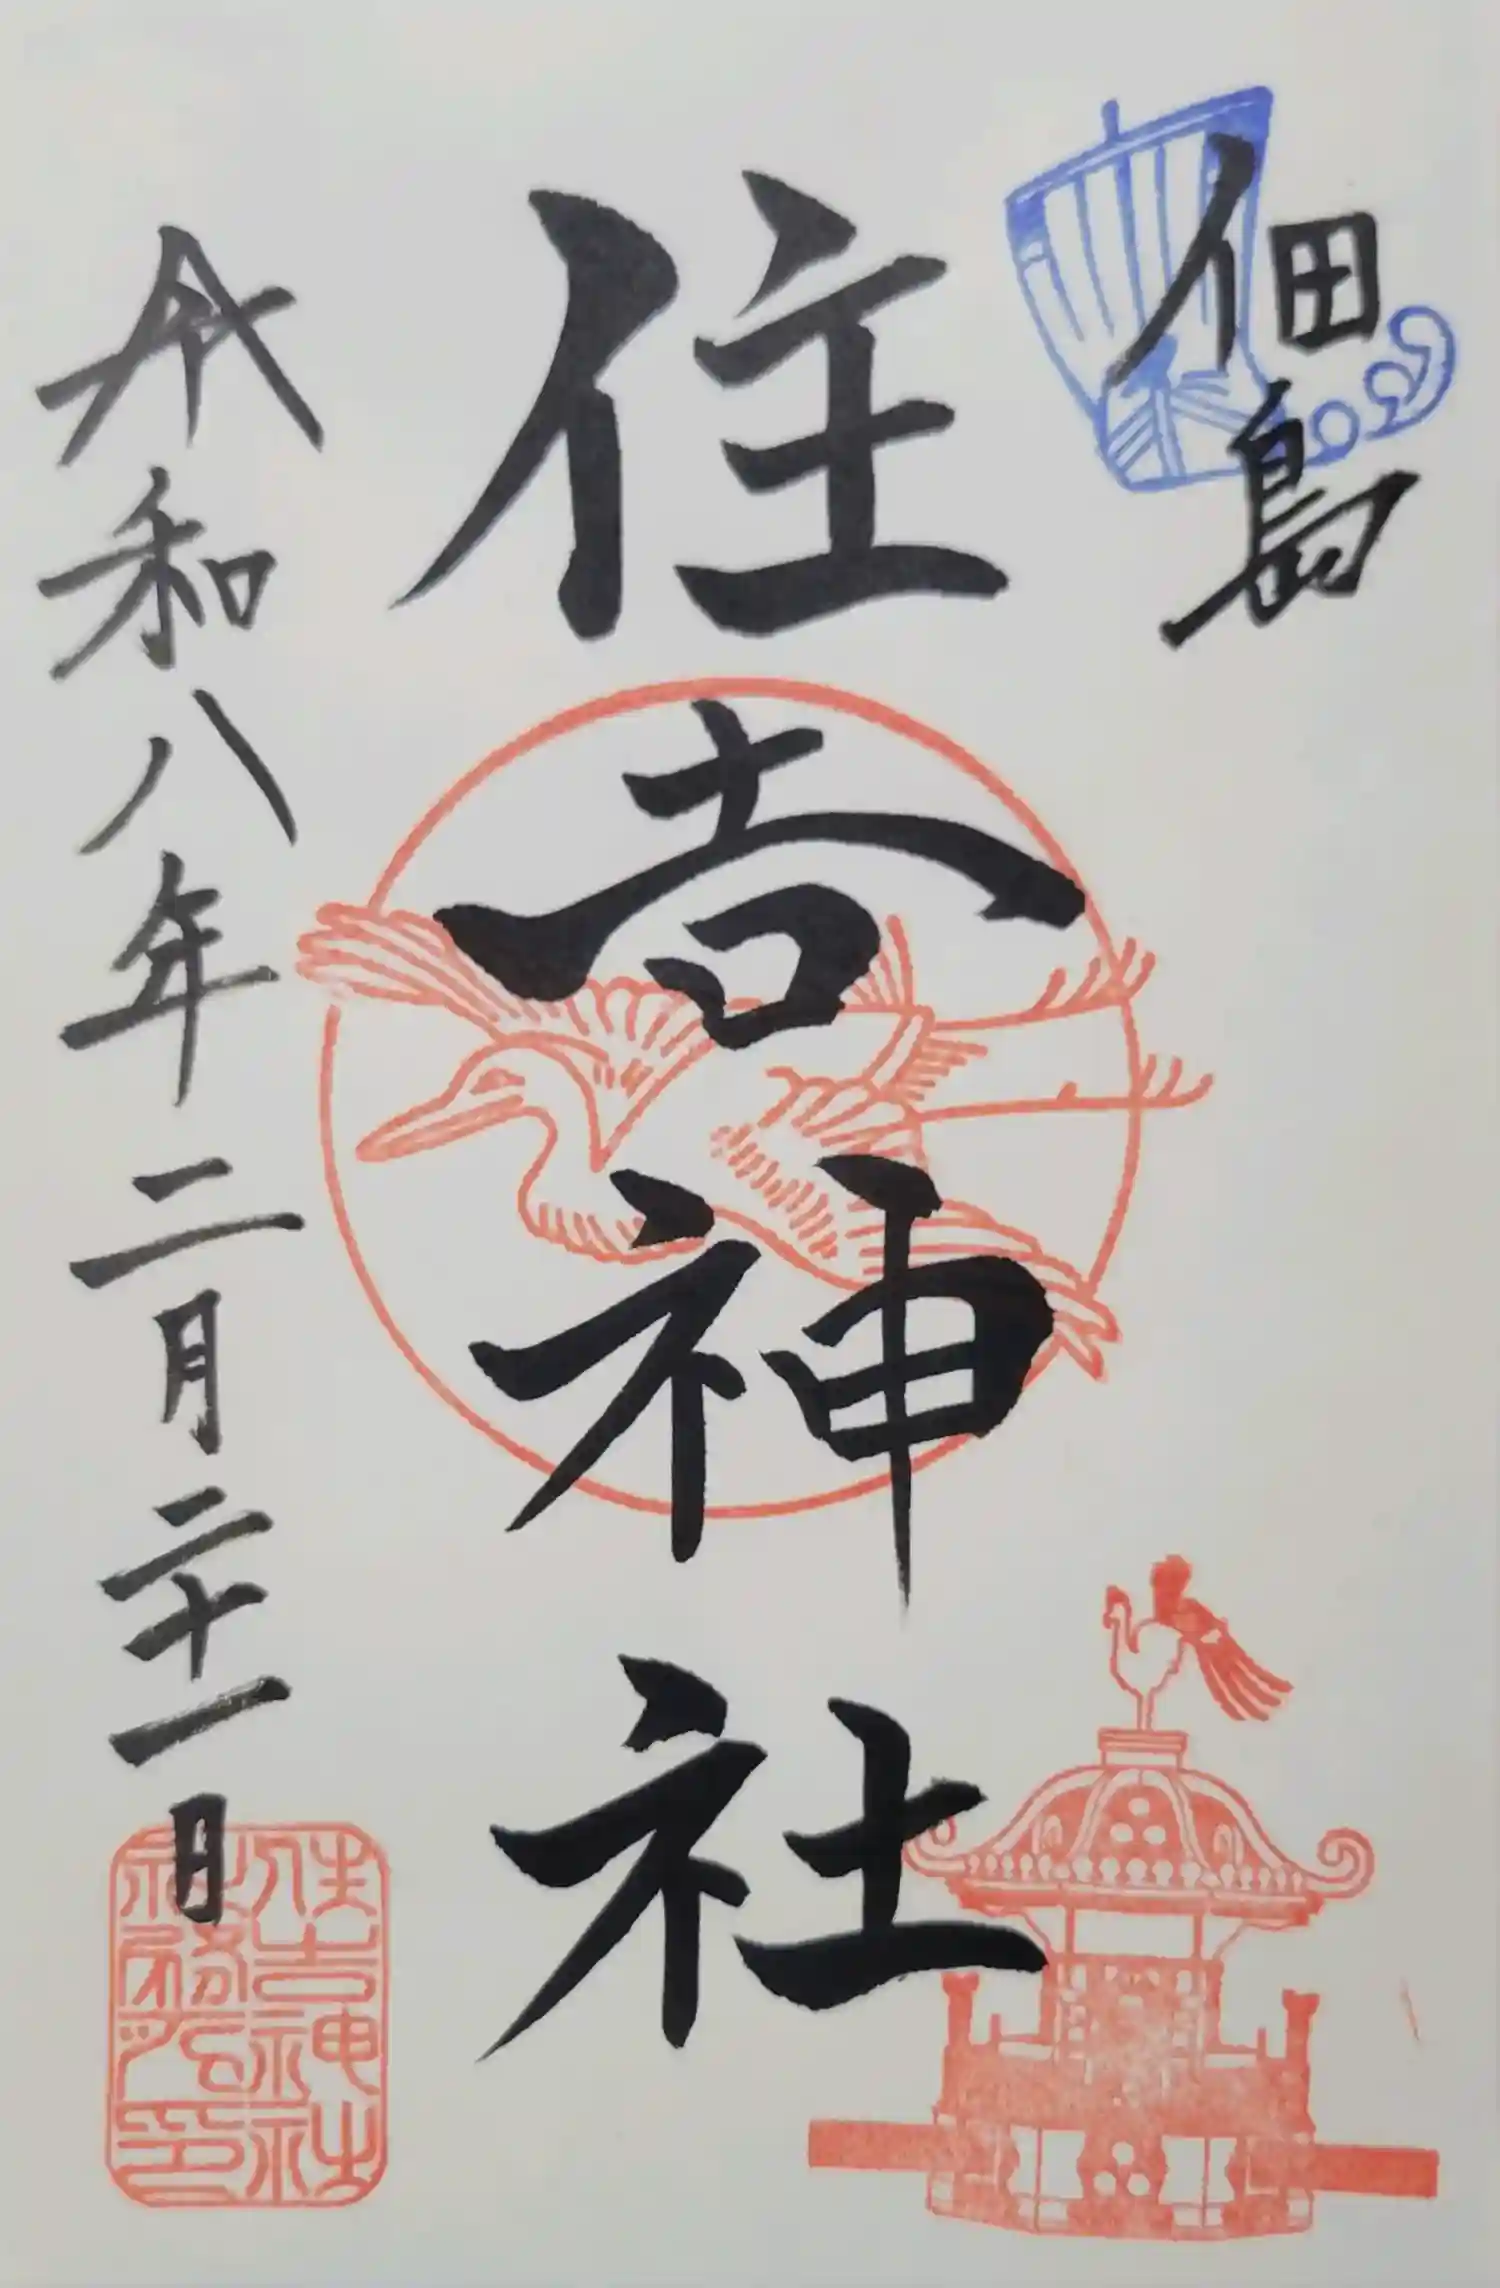 佃島
住吉神社
令和八年二月二十一日
住吉神社
社務所印